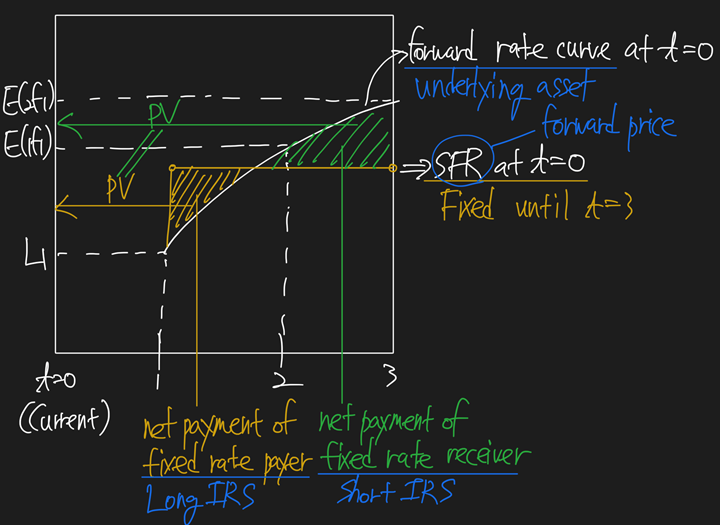 forward rate curve at t=0
underlying asset
E(2f1)
PV
E(1f1)
forward price
SFR at t=0
PV
Fixed until t=3
L1
t=0
1
2
3
(Current)
net payment of
fixed rate payer
Long IRS
net payment of
fixed rate receiver
Short IRS